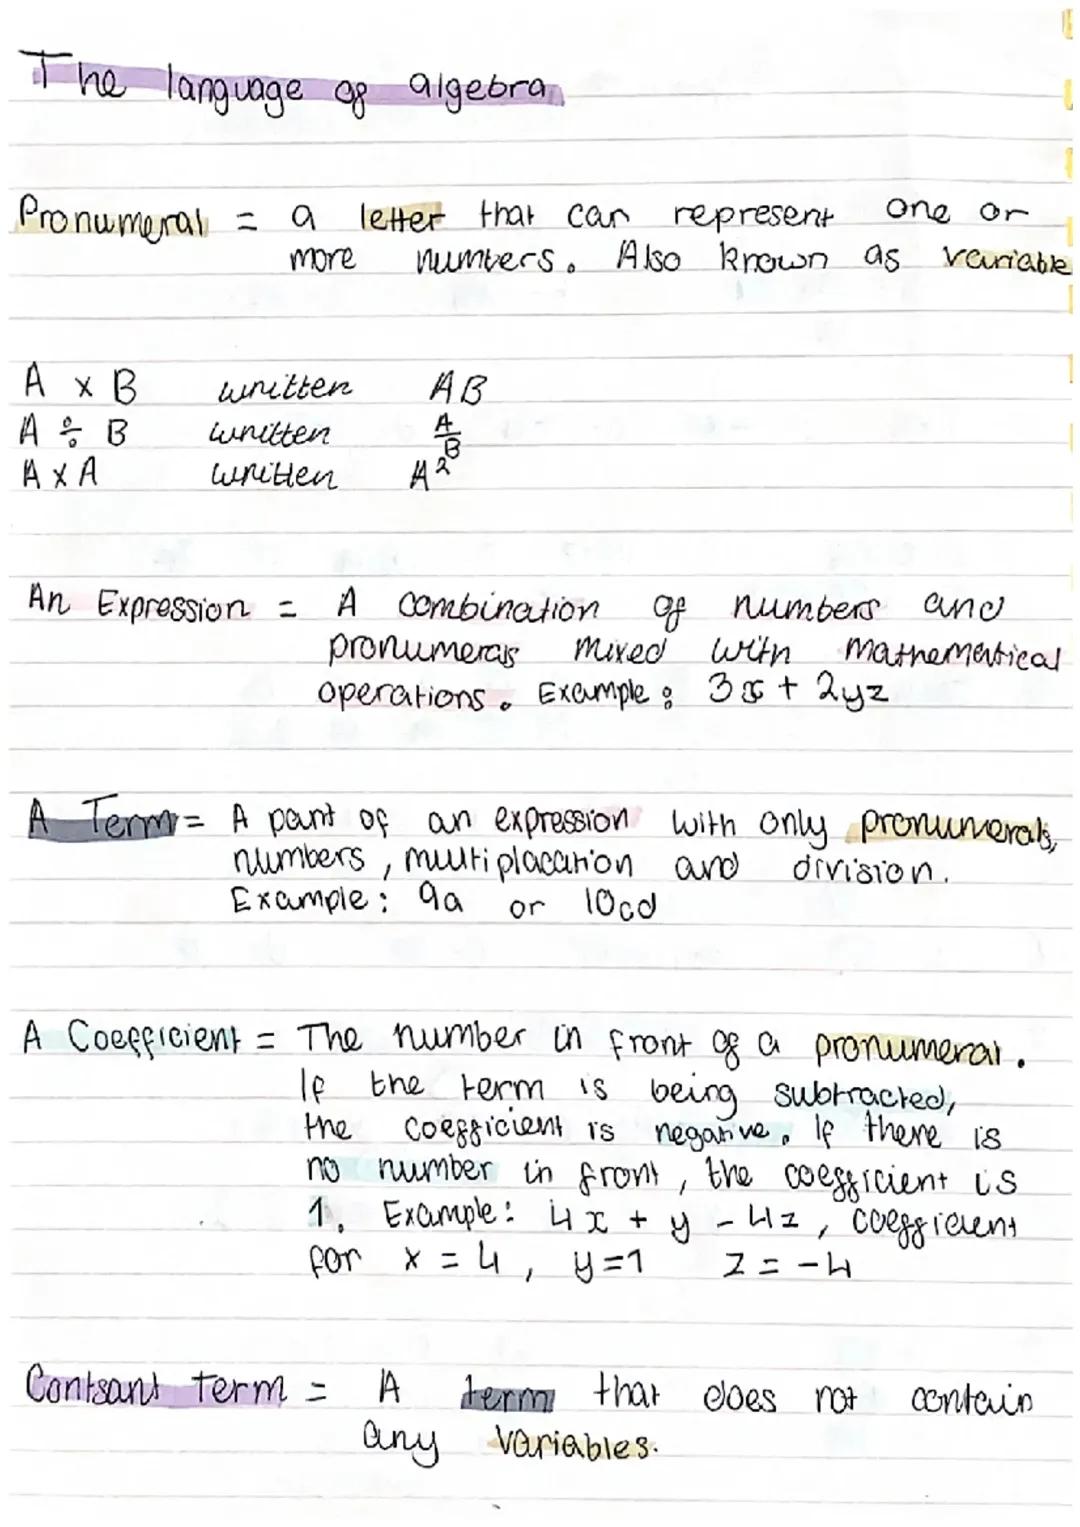 The language of algebra
Pronumeral = a letter that can represent one or
more numbers. Also known as variable
A x B written AB
A ÷ B written A/B
A x A written A²
An Expression = A combination of numbers and
pronumerals mixed with mathematical
operations. Example: 3x + 2yz
A Term = A part of an expression with only pronumerals,
numbers, multiplacation and division.
Example: 9a or 10cd
A Coefficient = The number in front of a pronumeral.
If the term is being subtracted,
the coefficient is negative. If there is
no number in front, the coefficient is
1. Example: 4x + y - 4z, coefficient
for x = 4, y = 1 z = -4
Contsant term = A term that does not contain
any variables.